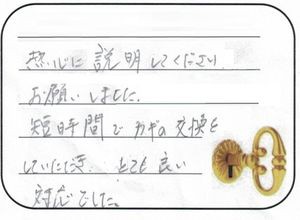 熱心に説明してください
お願いしました。
短時間でカギの交換を
していただき、とても良い
対応でした。